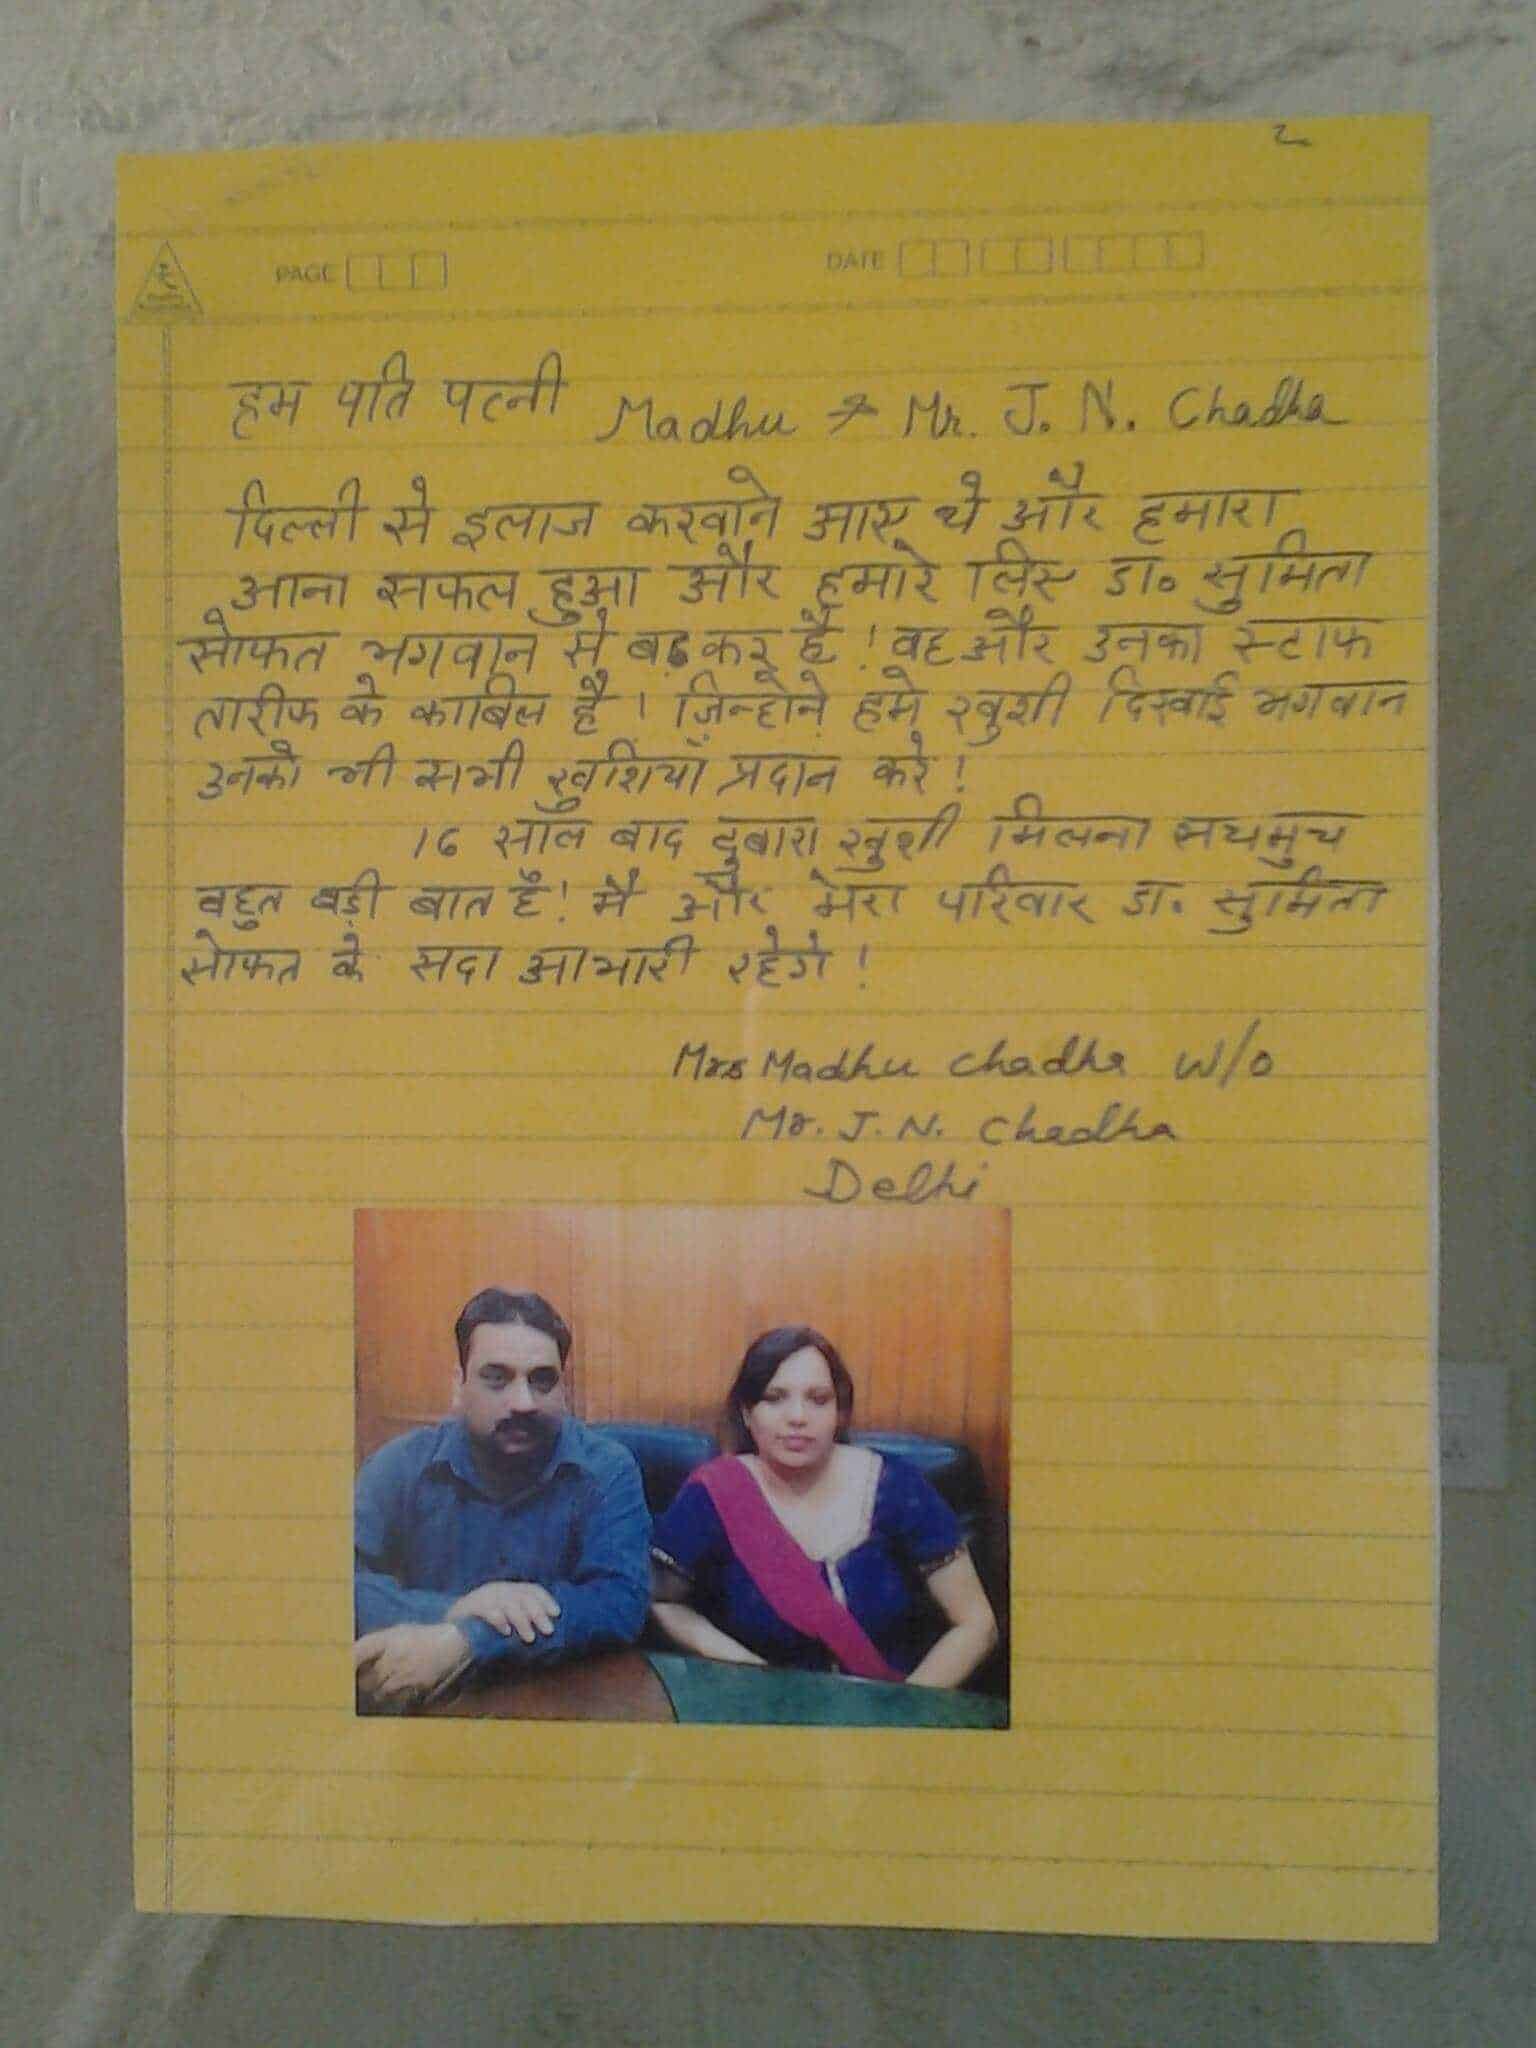 २
PAGE
DATE
हम पति पत्नी Madhu & Mr. J. N. Chadha
दिल्ली से इलाज करवाने आए थे और हमारा
आना सफल हुआ और हमारे लिए डा. सुमिता
सोफत भगवान से बढ़कर है! वह और उनका स्टाफ
तारीफ के काबिल है! ज़िन्होने हमे खुशी दिखाई भगवान
उनको भी सभी खुशियाँ प्रदान करे!
16 साल बाद दुबारा खुशी मिलना सचमुच
बहुत बड़ी बात है! मै और मेरा परिवार डा. सुमिता
सोफत के सदा आभारी रहेगे!
Mrs Madhu Chadha W/o
Mr. J. N. Chadha
Delhi